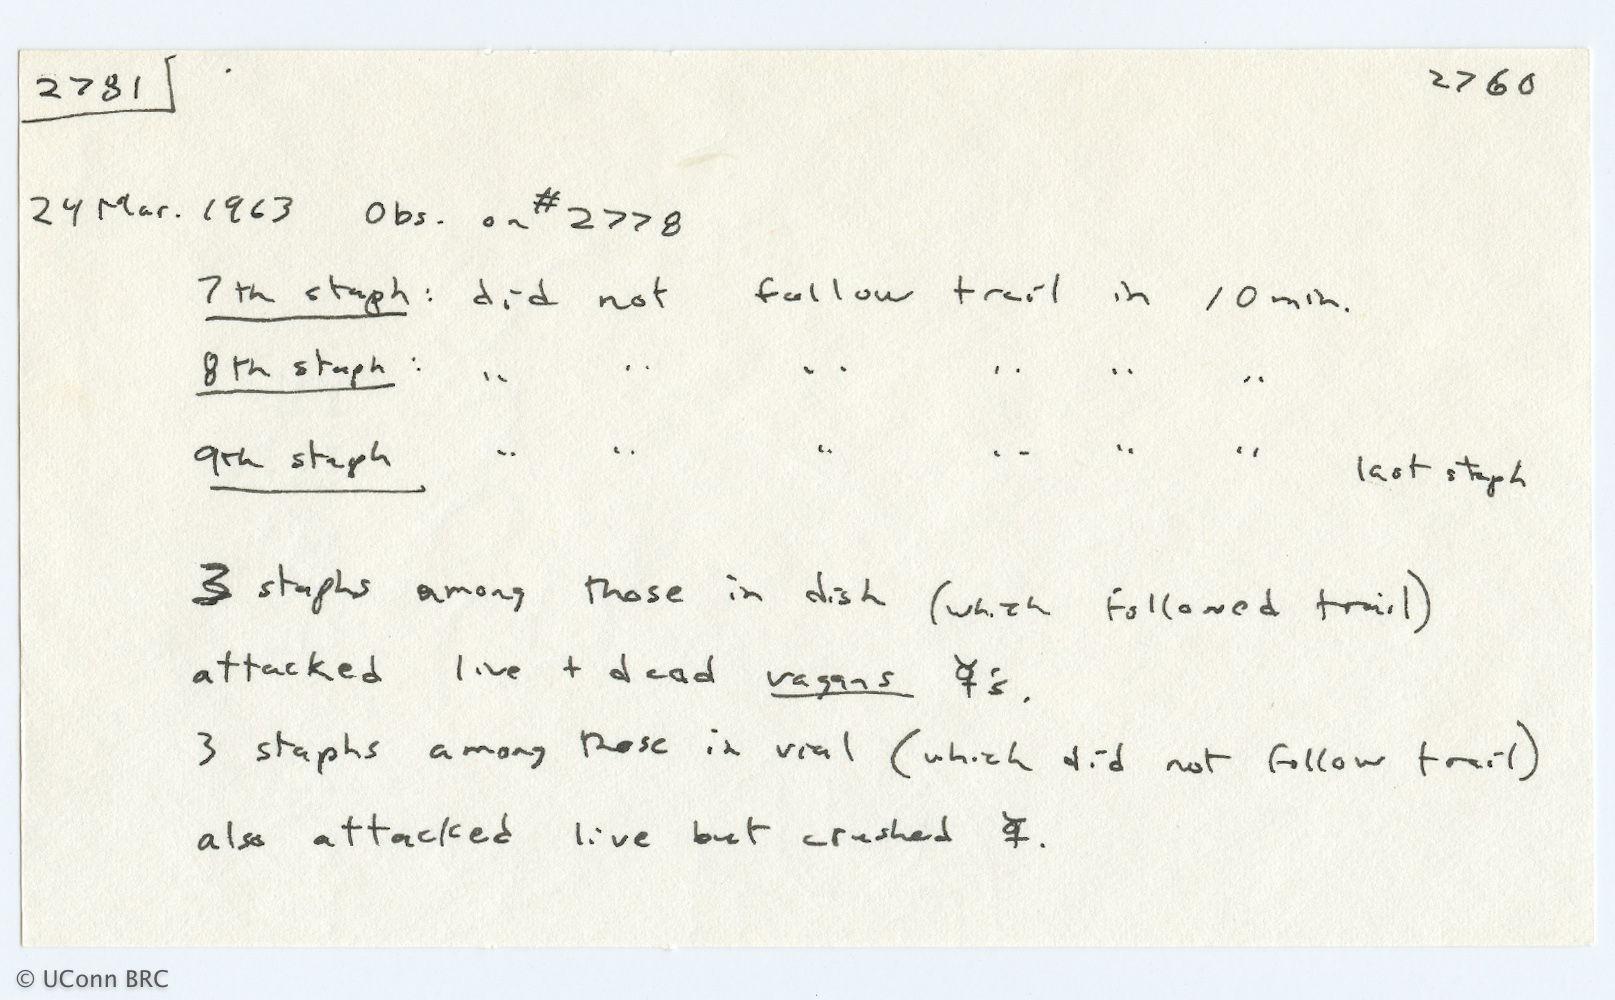 2781 2760
24 Mar. 1963 Obs. on #2778
7th staph: did not follow trail in 10 min.
8th staph: " " " " " "
9th staph " " " " " " last staph
3 staphs among those in dish (which followed trail)
attacked live + dead vagans ☿'s.
3 staphs among those in vial (which did not follow trail)
also attacked live but crushed ☿.
© UConn BRC